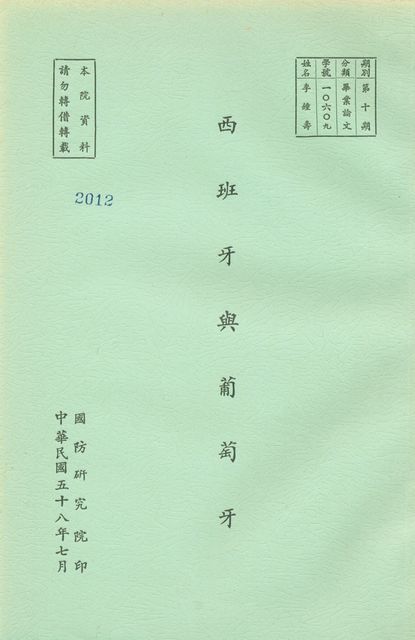 期別 第十期
分類 畢業論文
學號 一〇六〇九
姓名 李鍾壽
西班牙與葡萄牙
本院資料
請勿轉借轉載
2012
國防研究院印
中華民國五十八年七月